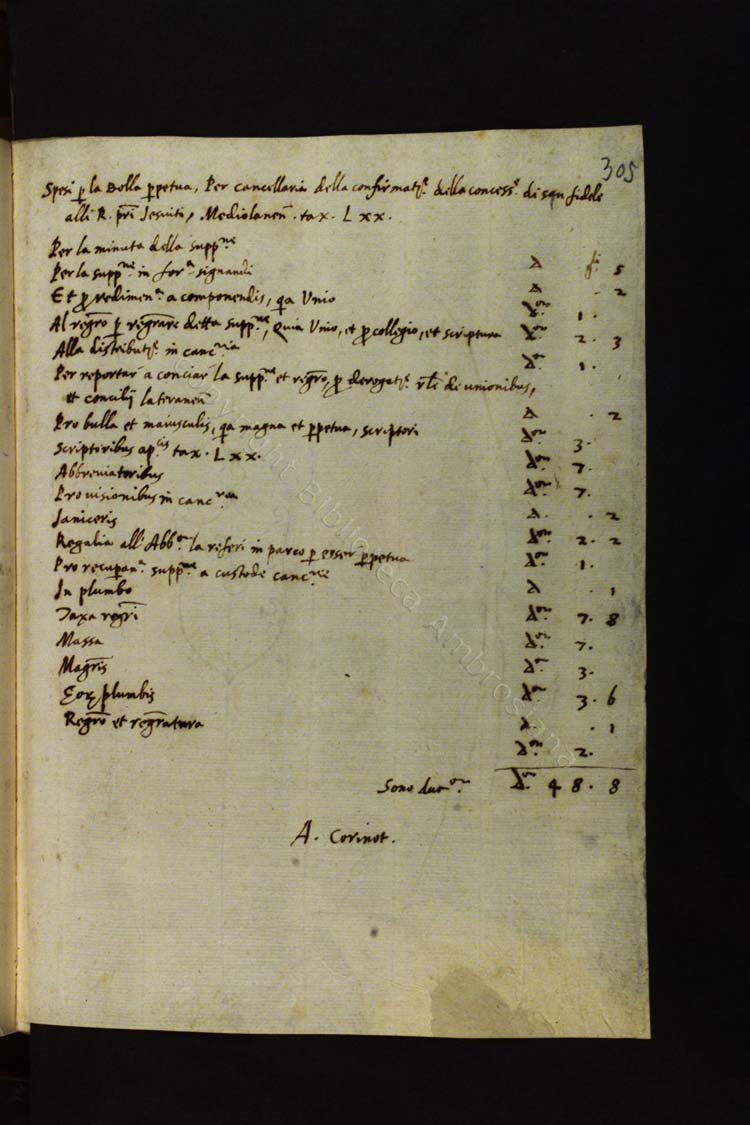 305
Spesi p la Bolla ppetua, Per cancellaria della confirmat.e della concess.e di san fidele
alli R. pri Jesuiti, Mediolanen. tax. L xx.
Per la minuta della supp.ne Δ 5
Per la supp.ne in for.a signandi Δ . 2
Et p redimen.a a componendis, qa Unio Δ.on 1 .
Al regro p regrare detta supp.ne, Quia Unio, et p collegio, et scriptura Δ.on 2 . 3
Alla distribut.e in canc.ria Δ.on 1 .
Per reportar a conciar la supp.ne et regro, p derogat.e rle de unionibus,
et concilij lateranen Δ . 2
Pro bulla et maiusculis, qa magna et ppetua, scriptori Δ.on 3 .
Scriptoribus ap.cis tax. L xx. Δ.on 7 .
Abbreviatoribus Δ.on 7 .
Provisionibus in canc.ria Δ . 2
Janiceris Δ.on 2 . 2
Regalia all' Abb.e la referi in parco p esser ppetua Δ.on 1 .
Pro recupan. supp.ne a custode canc.rie Δ . 1
In plumbo Δ.on 7 . 8
Taxa regri Δ.on 7 .
Massa Δ.on 3 .
Magris Δ.on 3 . 6
plumbis Δ . 1
Regro et regratura Δ.on 2 .
Sono duc.ti Δ.on 4 8 . 8
A. Corinot.
Copyright Biblioteca Ambrosiana